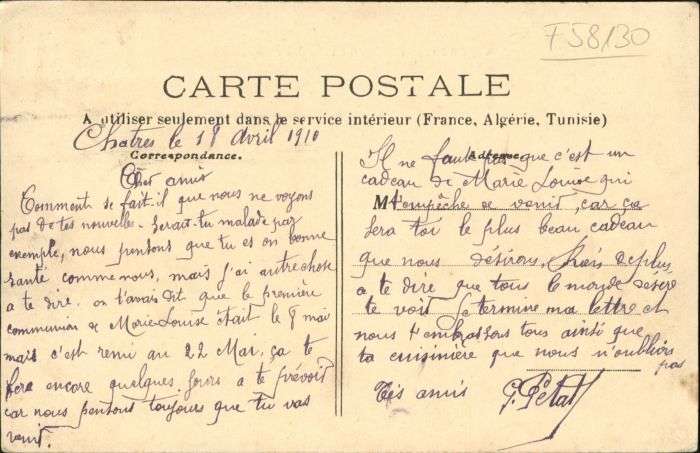 F58/30
CARTE POSTALE
A utiliser seulement dans le service intérieur (France, Algérie, Tunisie)
Chatres le 18 Avril 1910
Correspondance.
Cher amis
Comment se fait-il que nous ne voyons
pas de tes nouvelle. Serait-tu malade par
exemple, nous pensons que tu es en bonne
santé comme nous, mais j'ai autre chose
a te dire. on t'avais dit que le première
communion de Marie Louise était le 8 mai
mais c'est remi au 22 Mai. ça te
fera encore quelques jours a te prévoir
car nous pensons toujours que tu vas
venir.
Adresse
Il ne faut pas que c'est un
cadeau de Marie Louise qui
M t'empêche de venir, car ça
sera toi le plus beau cadeau
que nous désirons. Mais de plus
a te dire que tous le monde désire
te voir. Je termine ma lettre et
nous t'embrassons tous ainsi que
ta cuisinière que nous n'oublions
pas
Tes amis G. Petat